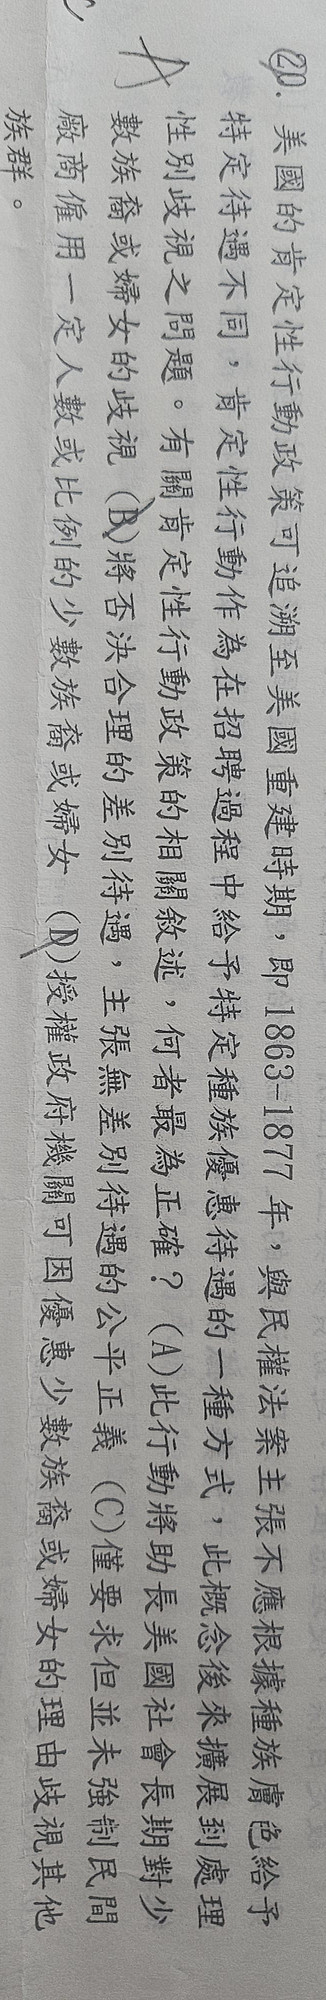 20. 美國的肯定性行動政策可追溯至美國重建時期，即1863-1877年，與民權法案主張不應根據種族膚色給予
特定待遇不同，肯定性行動作為在招聘過程中給予特定種族優惠待遇的一種方式，此概念後來擴展到處理
性別歧視之問題。有關肯定性行動政策的相關敘述，何者最為正確？(A)此行動將助長美國社會長期對少
A
數族裔或婦女的歧視 (B)將否決合理的差別待遇，主張無差別待遇的公平正義 (C)僅要求但並未強制民間
廠商僱用一定人數或比例的少數族裔或婦女 (D)授權政府機關可因優惠少數族裔或婦女的理由歧視其他
族群。